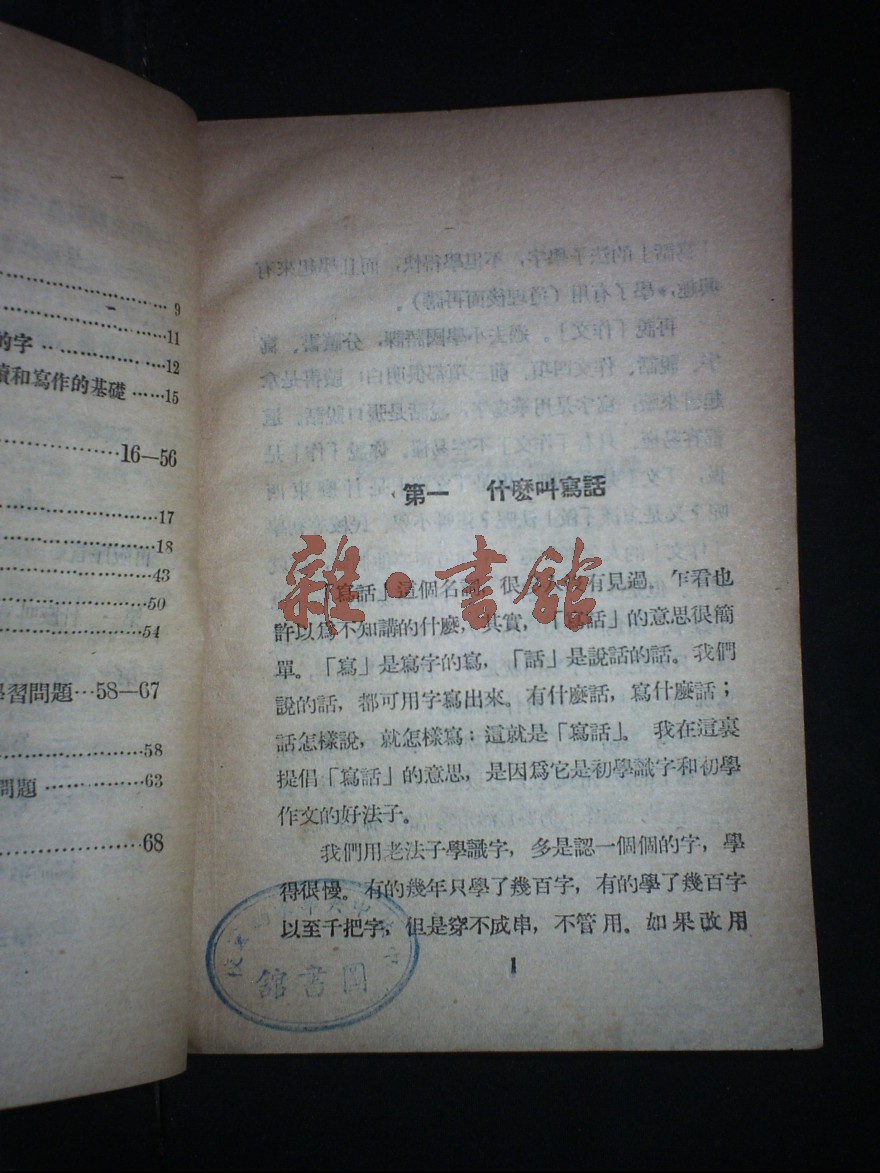 9
11
的字 12
讀和寫作的基礎 ……15
16—56
17
18
43
50
54
學習問題…58—67
58
問題 63
68
第一 什麼叫寫話
「寫話」這個名詞，很多人沒有見過。乍看也
許以爲不知講的什麼，其實，「寫話」的意思很簡
單。「寫」是寫字的寫，「話」是說話的話。我們
說的話，都可用字寫出來。有什麼話，寫什麼話；
話怎樣說，就怎樣寫：這就是「寫話」。我在這裏
提倡「寫話」的意思，是因爲它是初學識字和初學
作文的好法子。
我們用老法子學識字，多是認一個個的字，學
得很慢。有的幾年只學了幾百字，有的學了幾百字
以至千把字，但是穿不成串，不管用。如果改用
1
圖書館
雜·書館